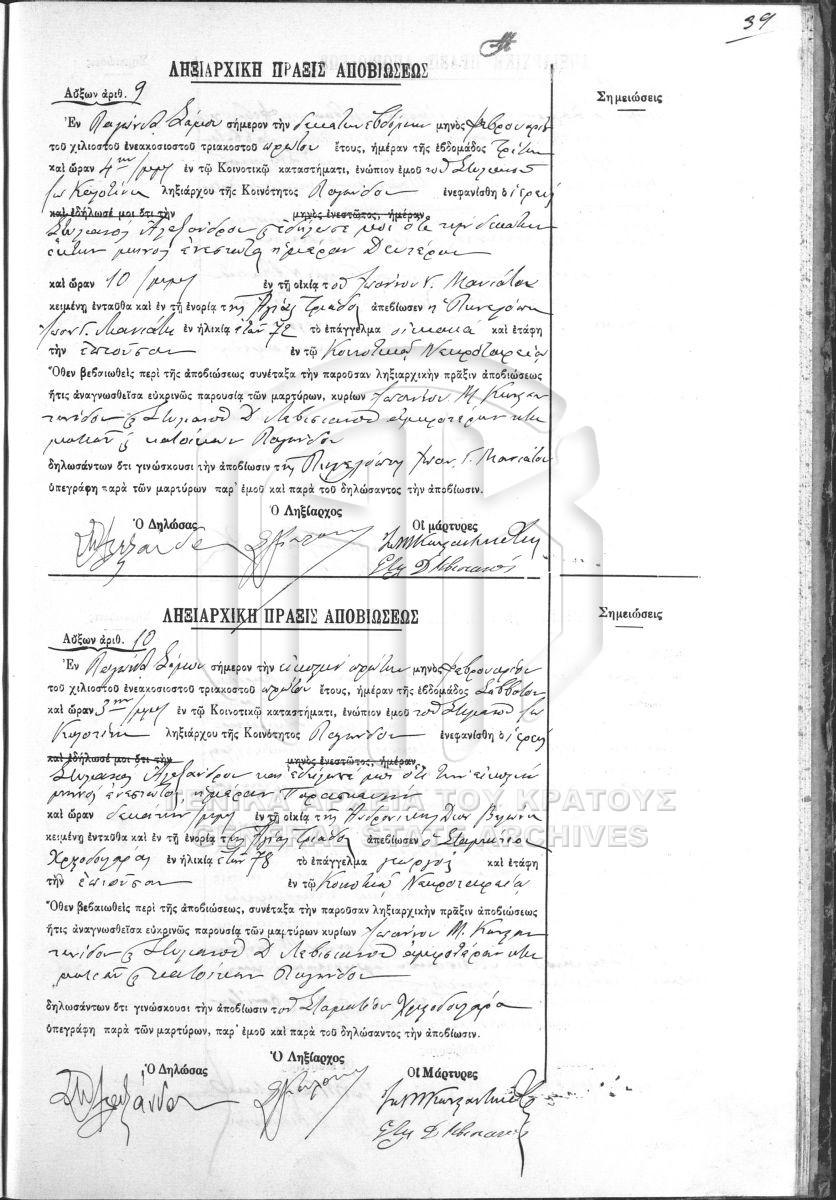 39
ΛΗΞΙΑΡΧΙΚΗ ΠΡΑΞΙΣ ΑΠΟΒΙΩΣΕΩΣ
Αὔξων ἀριθ. 9
Σημειώσεις
Ἐν Παγώνδᾳ Σάμου σήμερον τὴν δεκάτην ἑβδόμην μηνὸς Φεβρουαρίου
τοῦ χιλιοστοῦ ἐνεακοσιοστοῦ τριακοστοῦ πρώτου ἔτους, ἡμέραν τῆς ἑβδομάδος Τρίτην
καὶ ὥραν 4ην μμ ἐν τῷ Κοινοτικῷ καταστήματι, ἐνώπιον ἐμοῦ τοῦ Στυλιανοῦ
Ἰω ληξιάρχου τῆς Κοινότητος Παγώνδου ἐνεφανίσθη ὁ ἱερεὺς
καὶ ἐδήλωσέ μοι ὅτι τὴν μηνὸς ἐνεστῶτος, ἡμέραν
Στυλιανὸς Ἀλεξάνδρου ἐδήλωσέ μοι ὅτι τὴν δεκάτην
ἕκτην μηνὸς ἐνεστῶτος ἡμέραν Δευτέραν
καὶ ὥραν 10 ἐν τῇ οἰκίᾳ τοῦ Ἰωάννου Γ. Μανιάτου
κειμένῃ ἐνταῦθα καὶ ἐν τῇ ἐνορίᾳ τῆς Ἁγίας Τριάδος ἀπεβίωσεν ἡ Πηνελόπη
Ἰωαν. Γ. Μανιάτη ἐν ἡλικίᾳ ἐτῶν 72 τὸ ἐπάγγελμα οἰκιακὰ καὶ ἐτάφη
τὴν ἐπιοῦσαν ἐν τῷ Κοινοτικῷ Νεκροταφείῳ
Ὅθεν βεβαιωθεὶς περὶ τῆς ἀποβιώσεως συνέταξα τὴν παροῦσαν ληξιαρχικὴν πρᾶξιν ἀποβιώσεως
ἥτις ἀναγνωσθεῖσα εὐκρινῶς παρουσίᾳ τῶν μαρτύρων, κυρίων Ἰωάννου Μ. Κωνσταν
τινίδου Στυλιανοῦ Δ ἀμφοτέρων κτη
ματιῶν κατοίκων Παγώνδου
δηλωσάντων ὅτι γινώσκουσι τὴν ἀποβίωσιν τῆς Πηνελόπης Ἰωαν. Γ. Μανιάτου
ὑπεγράφη παρὰ τῶν μαρτύρων παρ' ἐμοῦ καὶ παρὰ τοῦ δηλώσαντος τὴν ἀποβίωσιν.
Ὁ Δηλώσας Ὁ Ληξίαρχος Οἱ μάρτυρες
ΛΗΞΙΑΡΧΙΚΗ ΠΡΑΞΙΣ ΑΠΟΒΙΩΣΕΩΣ
Αὔξων ἀριθ. 10
Σημειώσεις
Ἐν Παγώνδᾳ Σάμου σήμερον τὴν εἰκοστὴν πρώτην μηνὸς Φεβρουαρίου
τοῦ χιλιοστοῦ ἐνεακοσιοστοῦ τριακοστοῦ πρώτου ἔτους, ἡμέραν τῆς ἑβδομάδος Σάββατον
καὶ ὥραν 3ην μμ ἐν τῷ Κοινοτικῷ καταστήματι, ἐνώπιον ἐμοῦ τοῦ Στυλιανοῦ Ἰω
ληξιάρχου τῆς Κοινότητος Παγώνδου ἐνεφανίσθη ὁ ἱερεὺς
καὶ ἐδήλωσέ μοι ὅτι τὴν μηνὸς ἐνεστῶτος, ἡμέραν
Στυλιανὸς Ἀλεξάνδρου καὶ ἐδήλωσέ μοι ὅτι τὴν εἰκοστὴν
μηνὸς ἐνεστῶτος ἡμέραν Παρασκευὴν
ΓΕΝΙΚΑ ΑΡΧΕΙΑ ΤΟΥ ΚΡΑΤΟΥΣ
GENERAL STATE ARCHIVES
καὶ ὥραν δεκάτην ἐν τῇ οἰκίᾳ τῆς Ἀνδρονίκης
κειμένῃ ἐνταῦθα καὶ ἐν τῇ ἐνορίᾳ τῆς Ἁγίας Τριάδος ἀπεβίωσεν ὁ Σταμάτιος
ἐν ἡλικίᾳ ἐτῶν 78 τὸ ἐπάγγελμα γεωργὸς καὶ ἐτάφη
τὴν ἐπιοῦσαν ἐν τῷ Κοινοτικῷ Νεκροταφείῳ
Ὅθεν βεβαιωθεὶς περὶ τῆς ἀποβιώσεως, συνέταξα τὴν παροῦσαν ληξιαρχικὴν πρᾶξιν ἀποβιώσεως
ἥτις ἀναγνωσθεῖσα εὐκρινῶς παρουσίᾳ τῶν μαρτύρων κυρίων Ἰωάννου Μ. Κωνσταν
τινίδου Στυλιανοῦ Δ ἀμφοτέρων κτη
ματιῶν κατοίκων Παγώνδου
δηλωσάντων ὅτι γινώσκουσι τὴν ἀποβίωσιν τοῦ Σταματίου
ὑπεγράφη παρὰ τῶν μαρτύρων, παρ' ἐμοῦ καὶ παρὰ τοῦ δηλώσαντος τὴν ἀποβίωσιν.
Ὁ Δηλώσας Ὁ Ληξίαρχος Οἱ Μάρτυρες